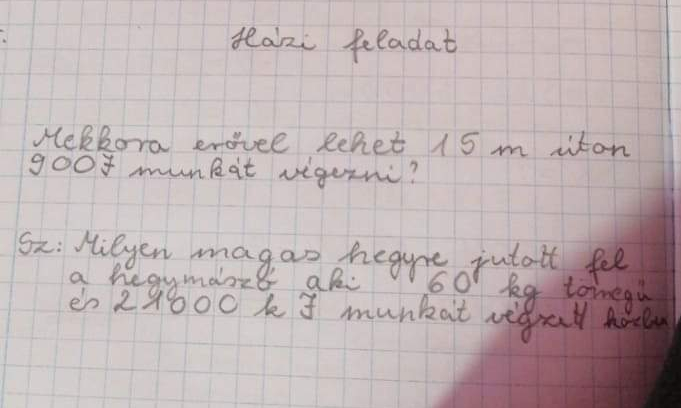 Házi feladat
Mekkora erővel lehet 15 m úton
900 J munkát végezni?
Sz: Milyen magas hegyre jutott fel
a hegymászó aki 60 kg tömegű
és 21600 k J munkát végzett közben